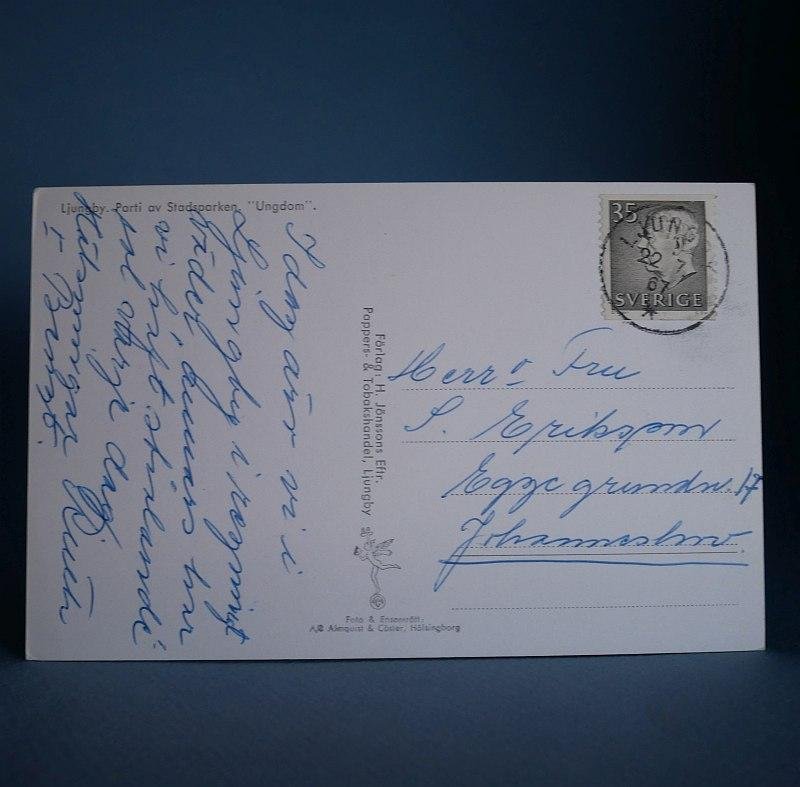 Ljungby. Parti av Stadsparken, "Ungdom".
I dag är vi i
Ljungby i regnigt
väder, annars har
vi haft strålande
sol varje dag
Hälsningar Ruth
Förlag: H. Jönssons Eftr.
Pappers- & Tobakshandel, Ljungby
Foto & Ensamrätt:
A/B Almquist & Cöster, Hälsingborg
35
SVERIGE
LJUNGBY
22 7
67
Herr o Fru
S. Eriksson
Eggegrundsv. 17
Johanneshov.